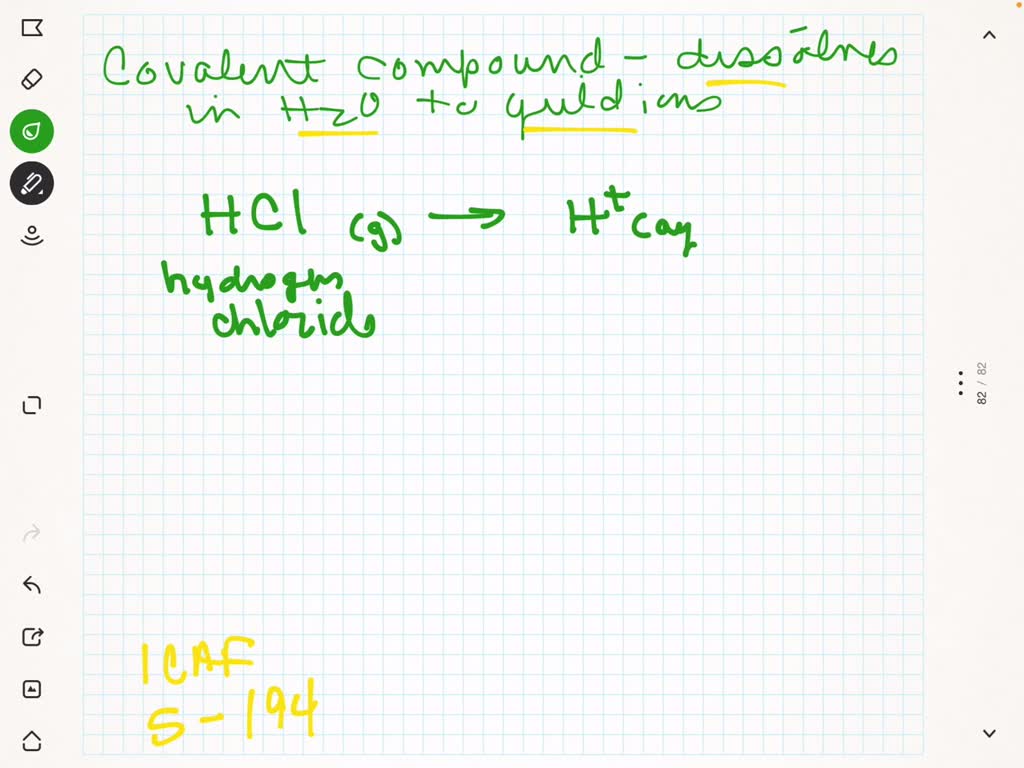 Covalent compound - dissolves
in H2O to yield ions
HCl (g) → H+ (aq
hydrogen
chloride
ICAF
5-194
82 / 82